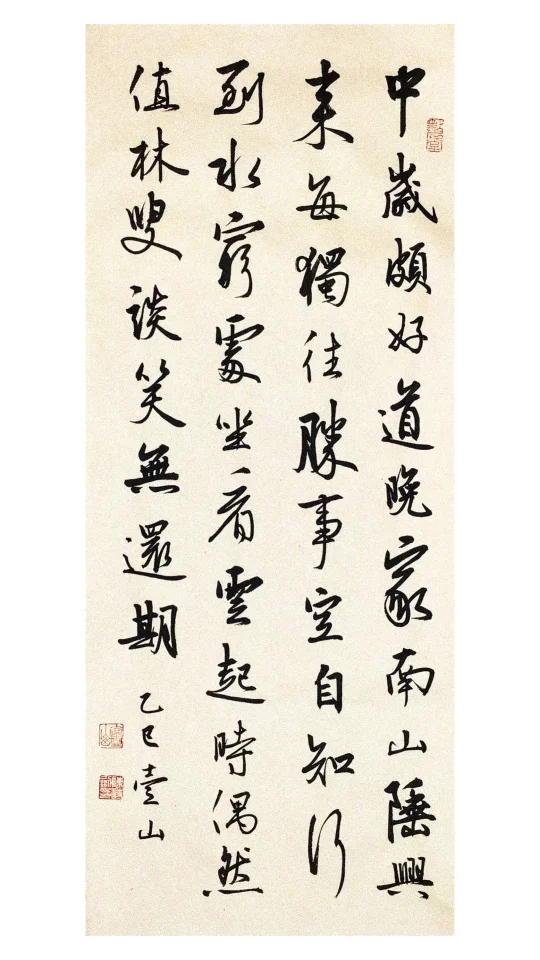 中歲頗好道晚家南山陲興
来每獨往勝事空自知行
到水窮處坐看雲起時偶然
值林叟談笑無還期
乙巳壹山